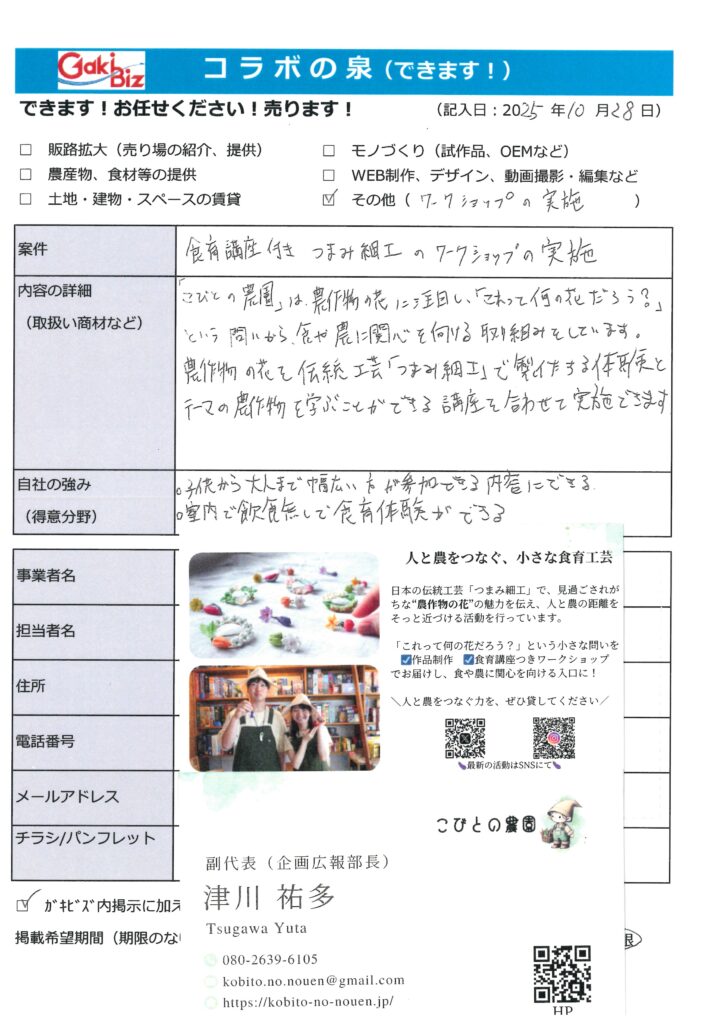 Gaki Biz
コラボの泉（できます！）
できます！お任せください！売ります！
（記入日：2025 年 10 月 28 日）
□ 販路拡大（売り場の紹介、提供）
□ モノづくり（試作品、OEMなど）
□ 農産物、食材等の提供
□ WEB制作、デザイン、動画撮影・編集など
□ 土地・建物・スペースの賃貸
☑ その他（ ワークショップの実施 ）
案件
食育講座付き つまみ細工のワークショップの実施
内容の詳細
（取扱い商材など）
「こびとの農園」は、農作物の花に注目し、「これって何の花だろう？」
という問いから、食や農に関心を向ける取り組みをしています。
農作物の花を伝統工芸「つまみ細工」で製作する体験と
テーマの農作物を学ぶことができる講座を合わせて実施できます
自社の強み
（得意分野）
○子供から大人まで幅広い方が参加できる内容にできる
○室内で飲食無しで食育体験ができる
事業者名
担当者名
住所
電話番号
メールアドレス
チラシ/パンフレット
☑ ｶﾞｷﾋﾞｽﾞ内掲示に加え
掲載希望期間（期限のな
限
人と農をつなぐ、小さな食育工芸
日本の伝統工芸「つまみ細工」で、見過ごされが
ちな“農作物の花”の魅力を伝え、人と農の距離を
そっと近づける活動を行っています。
「これって何の花だろう？」という小さな問いを
☑作品制作 ☑食育講座つきワークショップ
でお届けし、食や農に関心を向ける入口に！
＼人と農をつなぐ力を、ぜひ貸してください／
🍆最新の活動はSNSにて🍆
こびとの農園
副代表（企画広報部長）
津川 祐多
Tsugawa Yuta
080-2639-6105
kobito.no.nouen@gmail.com
https://kobito-no-nouen.jp/
HP